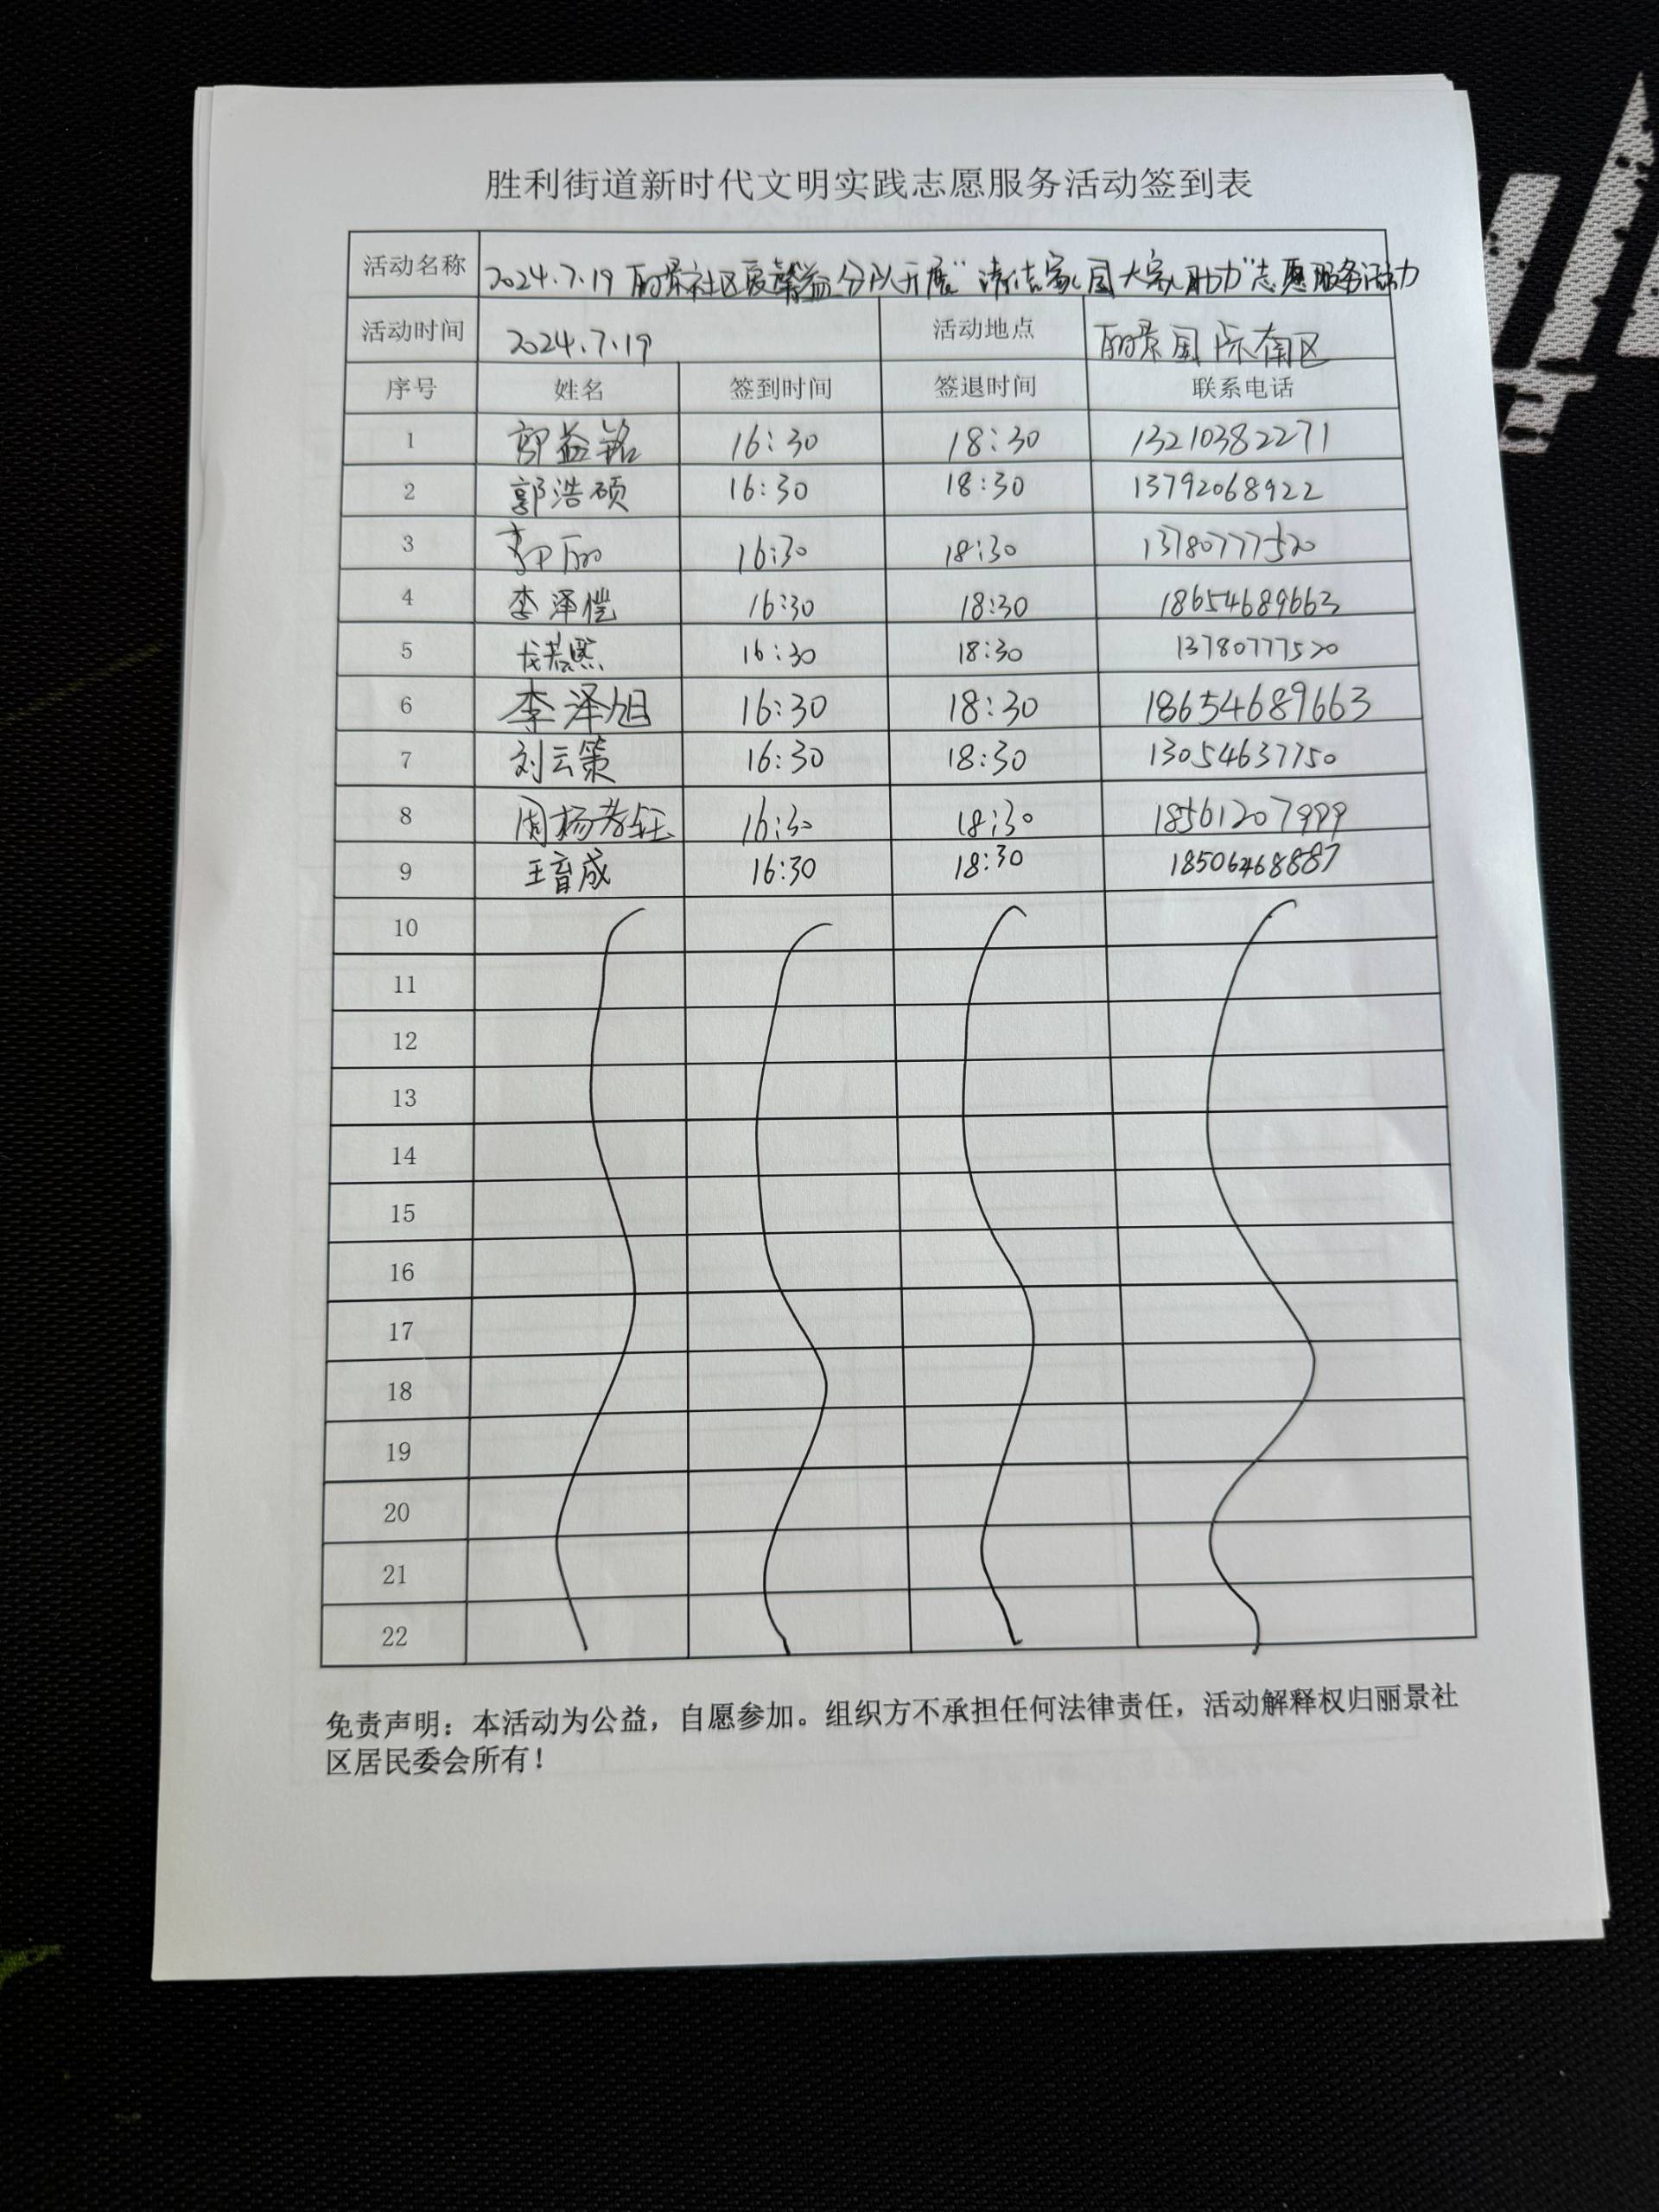 胜利街道新时代文明实践志愿服务活动签到表
活动名称 2024.7.19 丽景社区爱馨益分队开展"清洁家园 大家助力"志愿服务活动
活动时间 2024.7.19 活动地点 丽景国际南区
序号 姓名 签到时间 签退时间 联系电话
1 郭益铭 16:30 18:30 13210382271
2 郭浩硕 16:30 18:30 13792068922
3 丽 16:30 18:30 13780777520
4 李泽恺 16:30 18:30 18654689663
5 戈若熙 16:30 18:30 13780777520
6 李泽旭 16:30 18:30 18654689663
7 刘云策 16:30 18:30 13054637750
8 周杨芳钰 16:30 18:30 18561207999
9 王育成 16:30 18:30 18506468887
10
11
12
13
14
15
16
17
18
19
20
21
22
免责声明：本活动为公益，自愿参加。组织方不承担任何法律责任，活动解释权归丽景社
区居民委会所有！